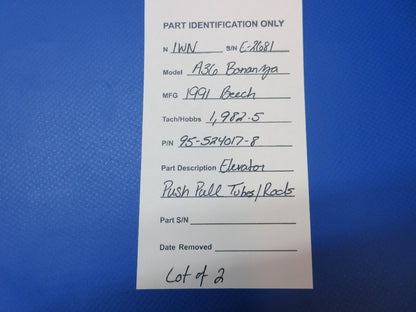 PART IDENTIFICATION ONLY
N 1WN S/N E-2681
Model A36 Bonanza
MFG 1991 Beech
Tach/Hobbs 1,982.5
P/N 95-524017-8
Part Description Elevator
Push Pull Tubes/Rods
Part S/N
Date Removed
Lot of 2